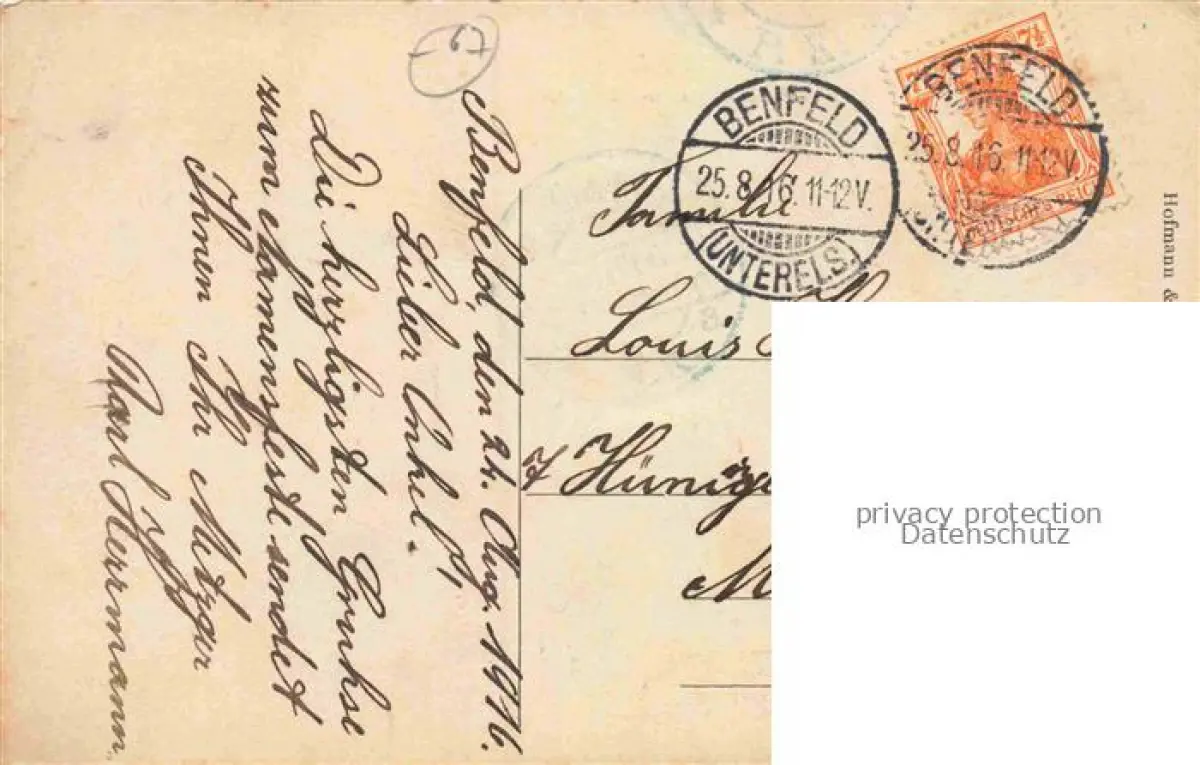 Benfeld, den 24. Aug. 1916.
Lieber Onkel.
Die herzligsten Gruhse
zum Namensfeste sendet
Ihnen Ihr Metzger
Karl Herrmann.
BENFELD
25.8.16. 11-12V.
(UNTERELS.)
BENFELD
25.8.16. 11-12V.
7½
DEUTSCHES REICH
Familie
Louis
Hünige
M
Hofmann &
privacy protection
Datenschutz